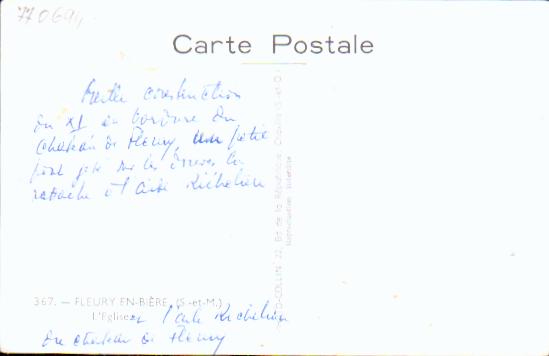 770694
Carte Postale
Belle construction
du XI en bordure du
chateau de Fleury, un petit
pont jeté sur les douves la
rattache à l'aile Richelieu
367. — FLEURY-EN-BIÈRE (S.-et-M.)
L'Eglise et l'aile Richelieu
du chateau de Fleury
22, Bd de la République
Reproduction interdite